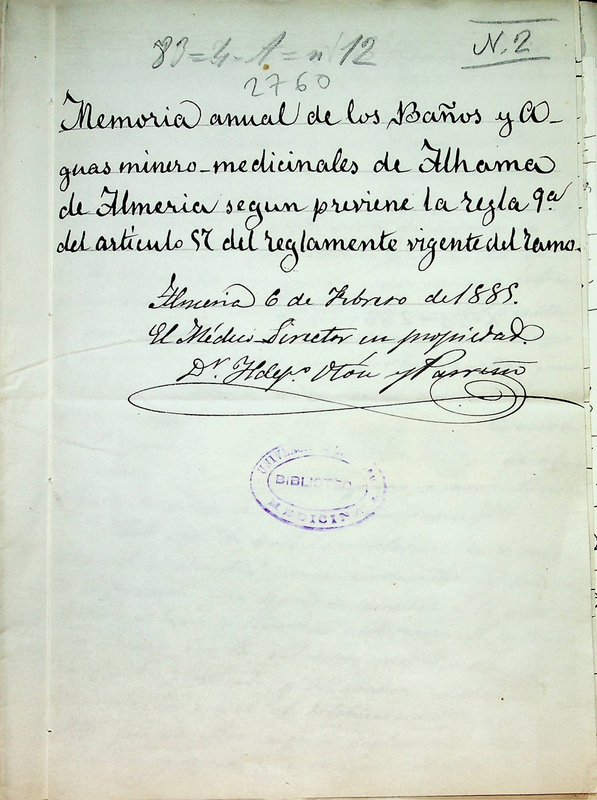 83=4-1=nº12
N. 2
2760
Memoria anual de los Baños y A-
guas minero-medicinales de Alhama
de Almeria segun previene la regla 9.ª
del artículo 57 del reglamente vigente del ramo.
Almeria 6 de Febrero de 1885.
El Médico Director en propiedad.
Dr. Ildefº Otón y Parreño
BIBLIOTECA
MEDICINA